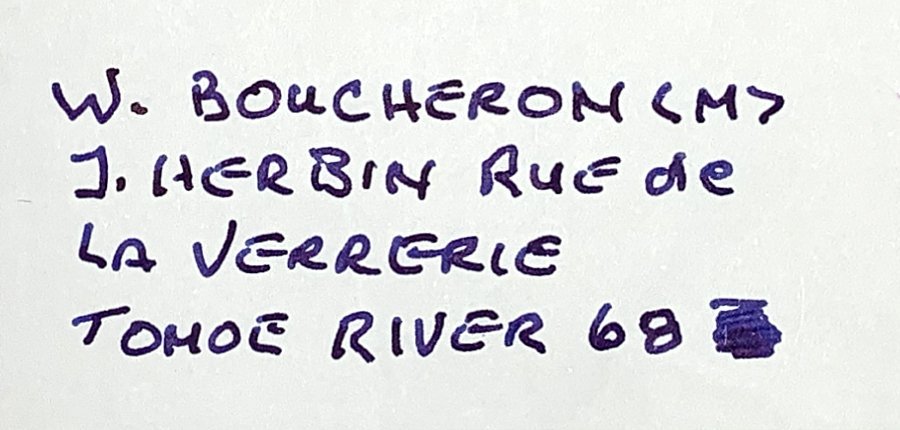 W. BOUCHERON <M>
J. HERBIN RUE de
LA VERRERIE
TOMOE RIVER 68